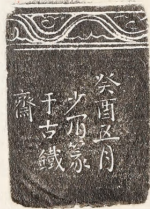 癸酉五月
少眉篆
于古鐵
齋